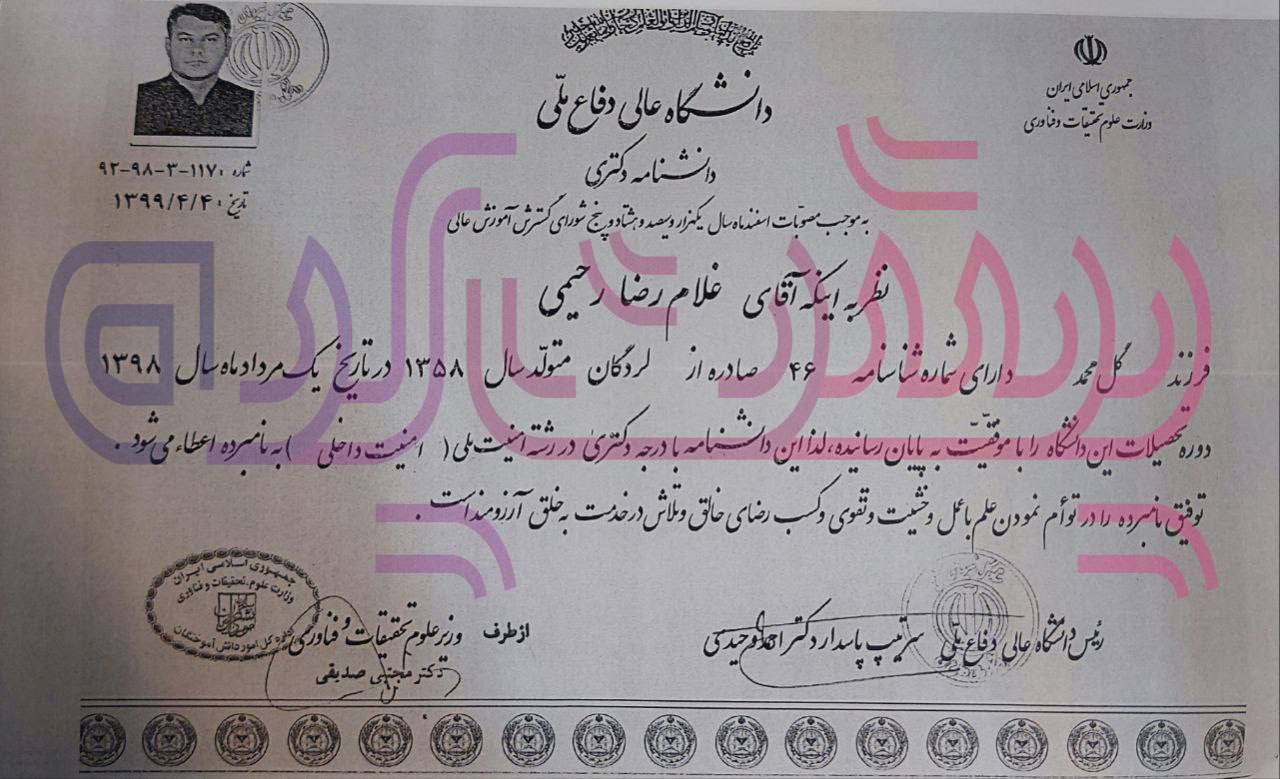 جمهوری اسلامی ایران
وزارت علوم تحقیقات و فناوری
دانشگاه عالی دفاع ملّی
دانشنامه دکتری
شماره: ۱۱۷۰-۳-۹۸-۹۲
تاریخ: ۱۳۹۹/۴/۴۰
به موجب مصوّبات اسفندماه سال یکهزار و سیصد و هشتاد و پنج شورای گسترش آموزش عالی
نظر به اینکه آقای غلام رضا رحیمی
فرزند گل محمد دارای شماره شناسنامه ۴۶ صادره از لردگان متولّد سال ۱۳۵۸ در تاریخ یک مردادماه سال ۱۳۹۸
دوره تحصیلات این دانشگاه را با موفقیّت به پایان رسانیده، لذا این دانشنامه با درجه دکتری در رشته امنیت ملی ( امنیت داخلی ) به نامبرده اعطاء می شود .
توفیق نامبرده را در توأم نمودن علم با عمل و خشیت و تقوی و کسب رضای خالق و تلاش در خدمت به خلق آرزومند است .
رئیس دانشگاه عالی دفاع ملّی سرتیپ پاسدار دکتر احمد وحیدی
از طرف وزیر علوم تحقیقات و فناوری
دکتر مجتبی صدیقی
جمهوری اسلامی ایران
وزارت علوم، تحقیقات و فناوری
اداره کل امور دانش آموختگان